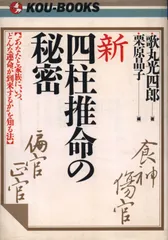 KOU-BOOKS
歌丸光四郎 著
栗原晶子 編
新
四柱推命の
秘密
【“あなたと家族に、いつ、
どんな運命が到来するか”を知る法】
偏官
正官
食神
傷官